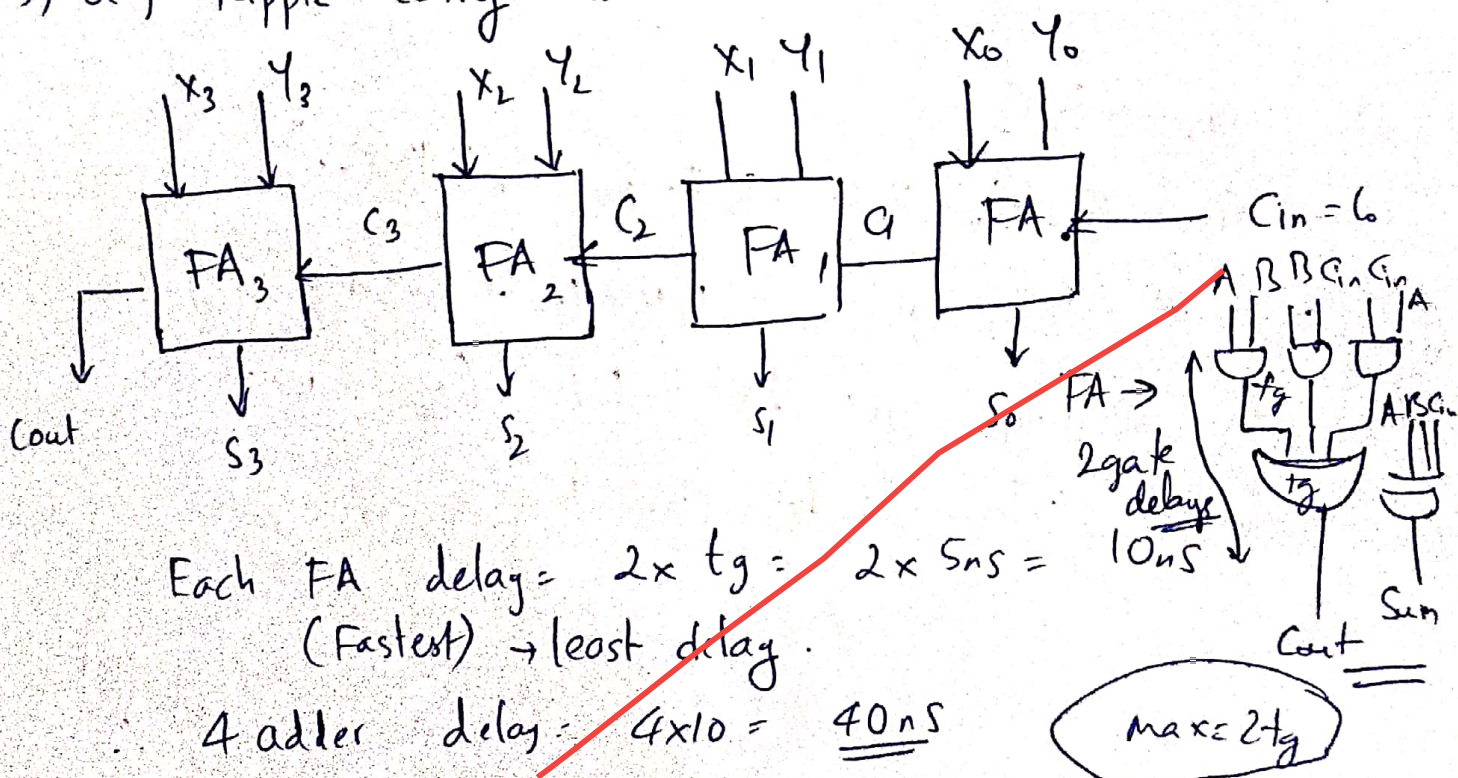 Ripple
X3 Y3 X2 Y2 X1 Y1 X0 Y0
FA3 C3 FA2 C2 FA1 C1 FA0 Cin = C0
Cout S3 S2 S1 S0
A B B Cin Cin A
tg
A B Cin
tg
FA →
2 gate
delays
10ns
Cout Sum
Each FA delay = 2 x tg = 2 x 5ns =
(Fastest) → least delay.
∴ 4 adder delay = 4x10 = 40ns
max = 2tg